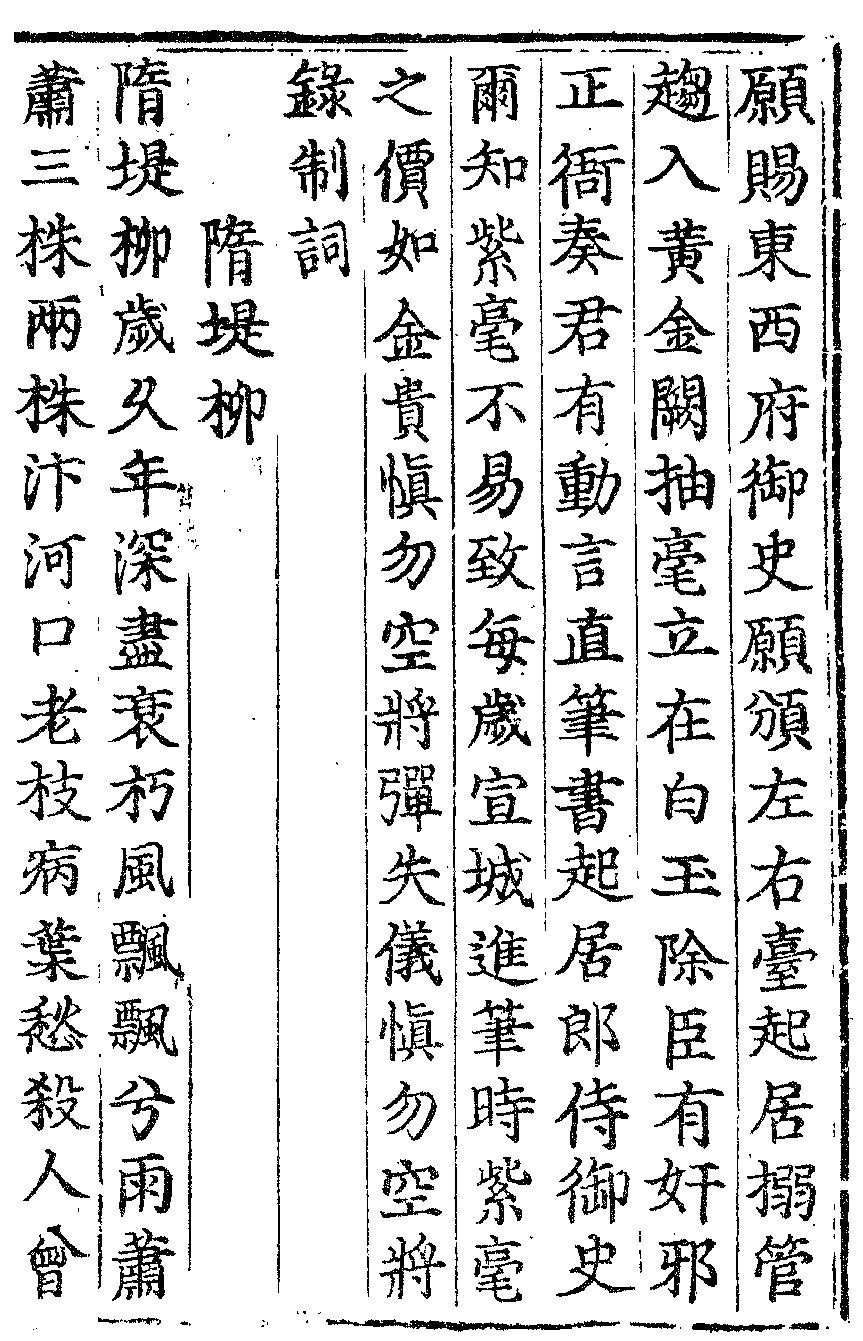 願賜東西府御史願頒左右臺起居搦管
趨入黃金闕抽毫立在白玉除臣有奸邪
正衙奏君有動言直筆書起居郎侍御史
爾知紫毫不易致每歲宣城進筆時紫毫
之價如金貴愼勿空將彈失儀愼勿空將
錄制詞
隋堤柳
隋堤柳歲久年深盡衰朽風飄飄兮雨蕭
蕭三株兩株汴河口老枝病葉愁殺人曾